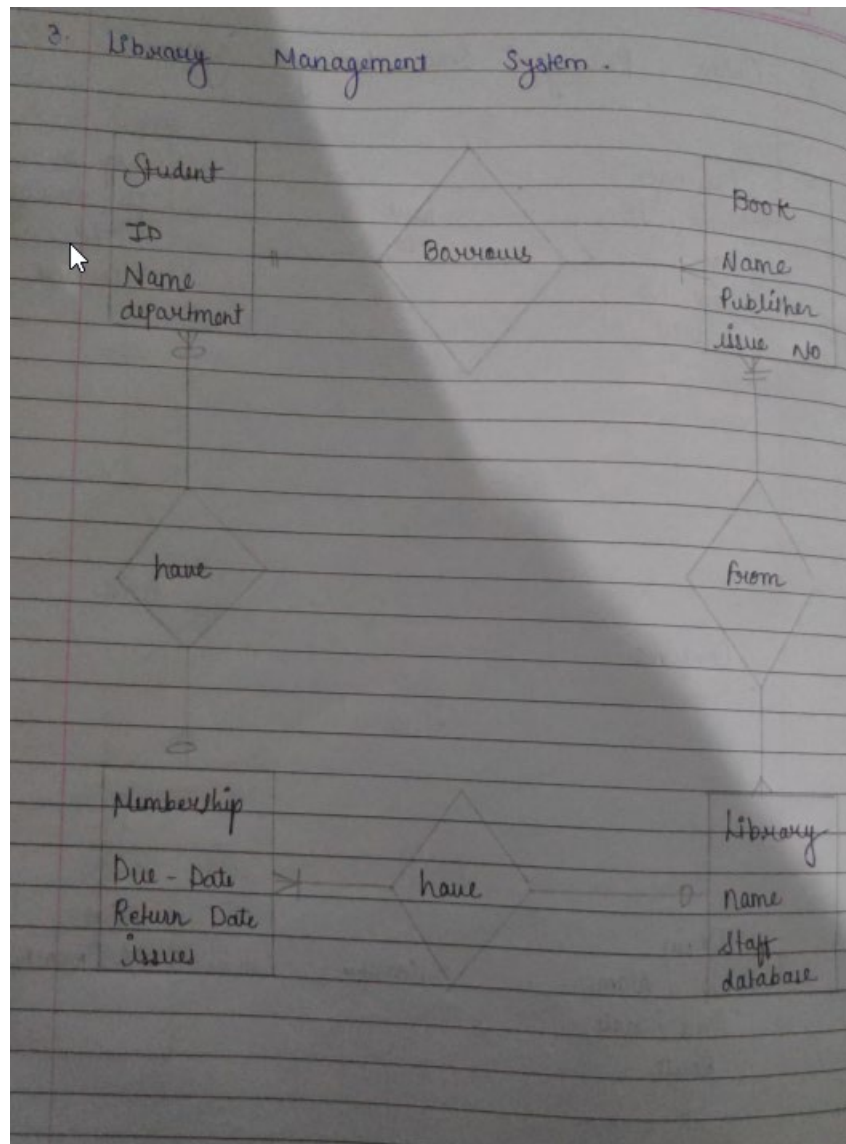 3. Library Management System.
Student
ID
Name
department
Barrows
Book
Name
Publisher
issue No
have
from
Membership
Due - Date
Return Date
issues
have
Library
name
Staff
database